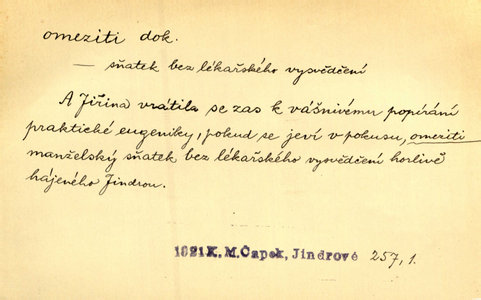 omeziti dok.
— sňatek bez lékařského vysvědčení
A Jiřina vrátila se zas k vášnivému popírání
praktické eugeniky, pokud se jeví v pokusu, omeziti
manželský sňatek bez lékařského vysvědčení horlivě
hájeného Jindrou.
1921 K. M. Čapek, Jindrové 257, 1.